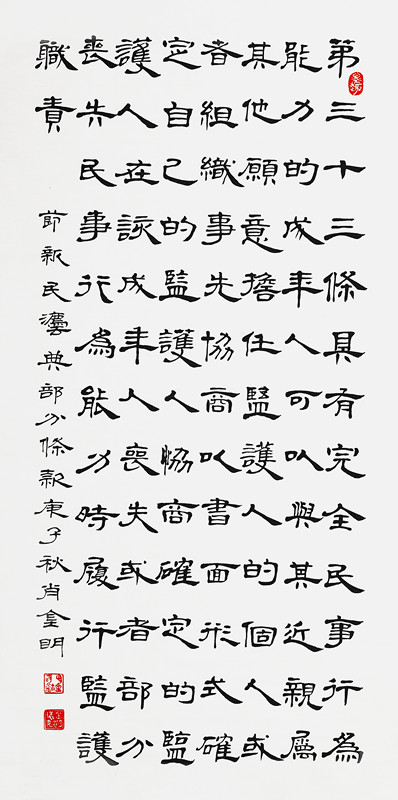 第三十三條具有完全民事行為
能力的成年人可以與其近親屬
其他願意擔任監護人的個人或
者組織事先協商以書面形式確
定自己的監護人協商確定的監
護人在該成年人喪失或者部分
喪失民事行為能力時履行監護
職責
節新民灋典部分條款庚子秋肖金明